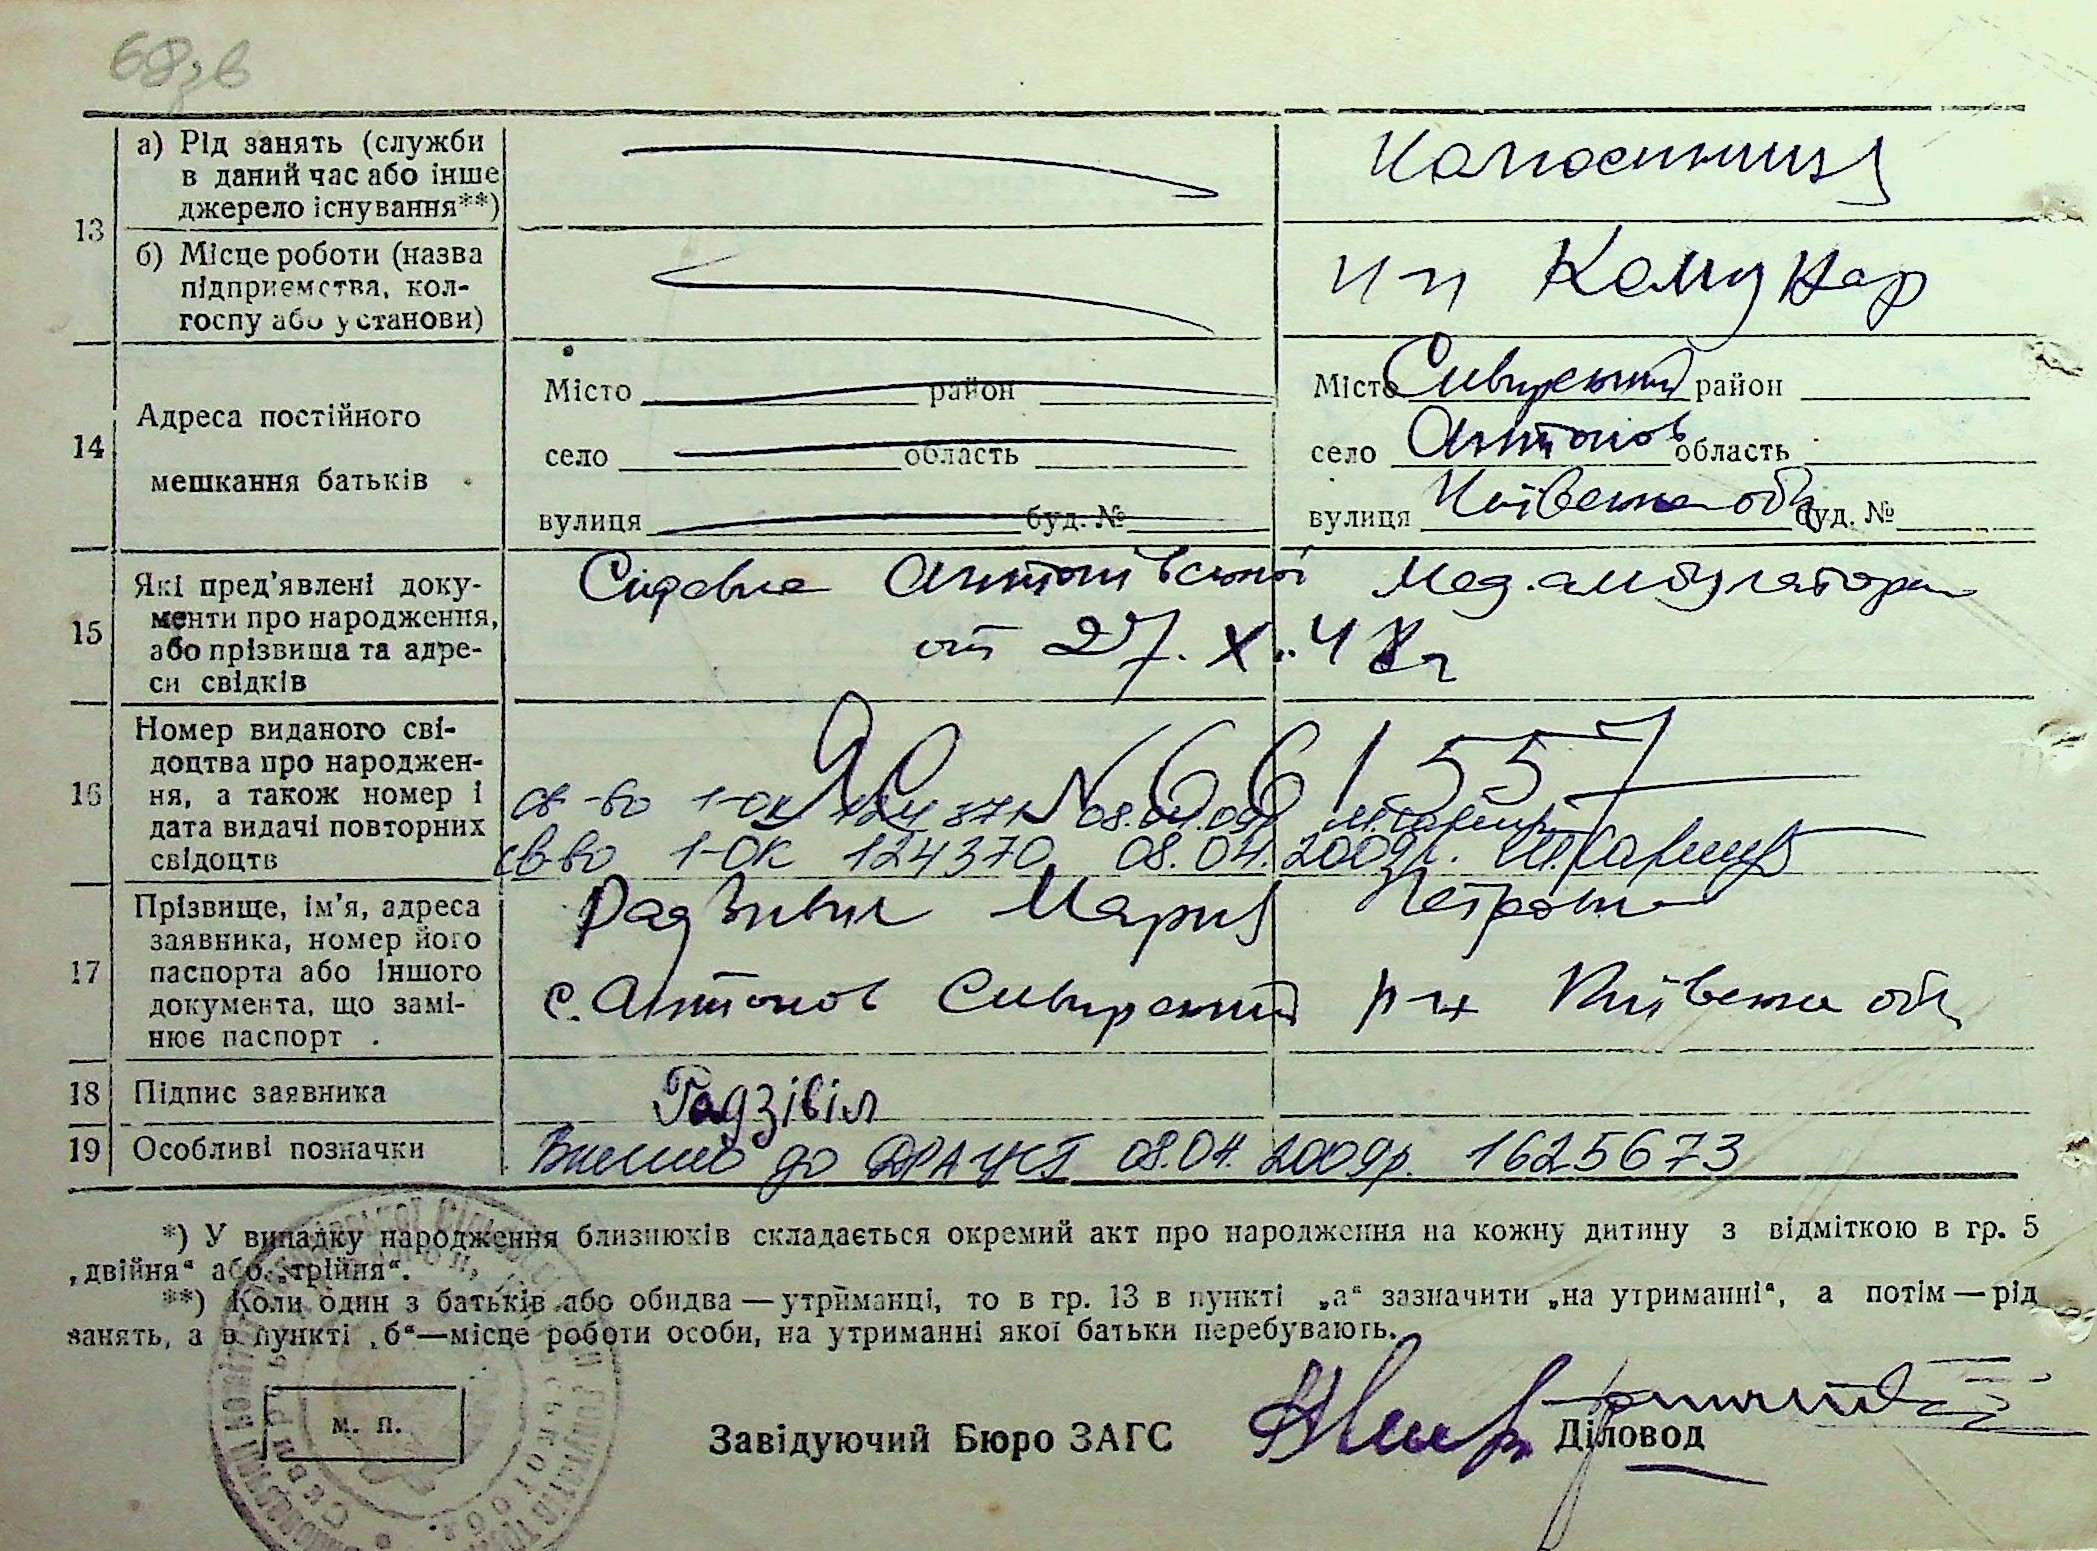 68зв
13
а) Рід занять (служби
в даний час або інше
джерело існування**)
Колгоспниця
б) Місце роботи (назва
підприємства, кол-
госпу або установи)
Комунар
14
Адреса постійного
мешкання батьків
Місто район
село область
вулиця буд. №
Місто Сквирський район
село Антонов область
вулиця Київська обл буд. №
15
Які пред'явлені доку-
менти про народження,
або прізвища та адре-
си свідків
Антонівської Мед. амбулатори
от 27. X. 48 г
16
Номер виданого сві-
доцтва про народжен-
ня, а також номер і
дата видачі повторних
свідоцтв
ЯО № 661557
св-во 1-ОК 124371 08.04.09р
св-во 1-ОК 124370 08.04.2009р.
17
Прізвище, ім'я, адреса
заявника, номер його
паспорта або іншого
документа, що замі-
нює паспорт .
Радзивил Мария Петровна
с. Антонов Сквирский р-н Київська обл
18
Підпис заявника
Радзівіл
19
Особливі позначки
Внесено до ДРАЦСГ 08.04.2009р. 1625673
*) У випадку народження близнюків складається окремий акт про народження на кожну дитину з відміткою в гр. 5
„двійня“ або „трійня“.
**) Коли один з батьків або обидва — утриманці, то в гр. 13 в пункті „а“ зазначити „на утриманні“, а потім — рід
занять, а в пункті „б“—місце роботи особи, на утриманні якої батьки перебувають.
М. П.
Завідуючий Бюро ЗАГС
Діловод